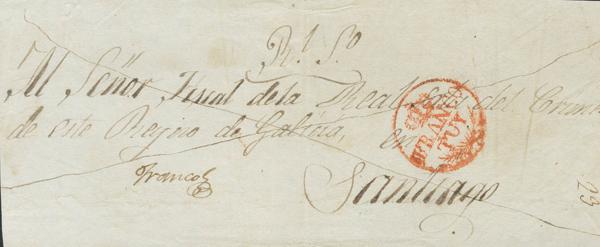 Rl. So.
Al Señor Fiscal de la Real Sala del Crimen
de este Reyno de Galicia, en
FRANCO
TUY
Franco
Santiago
23